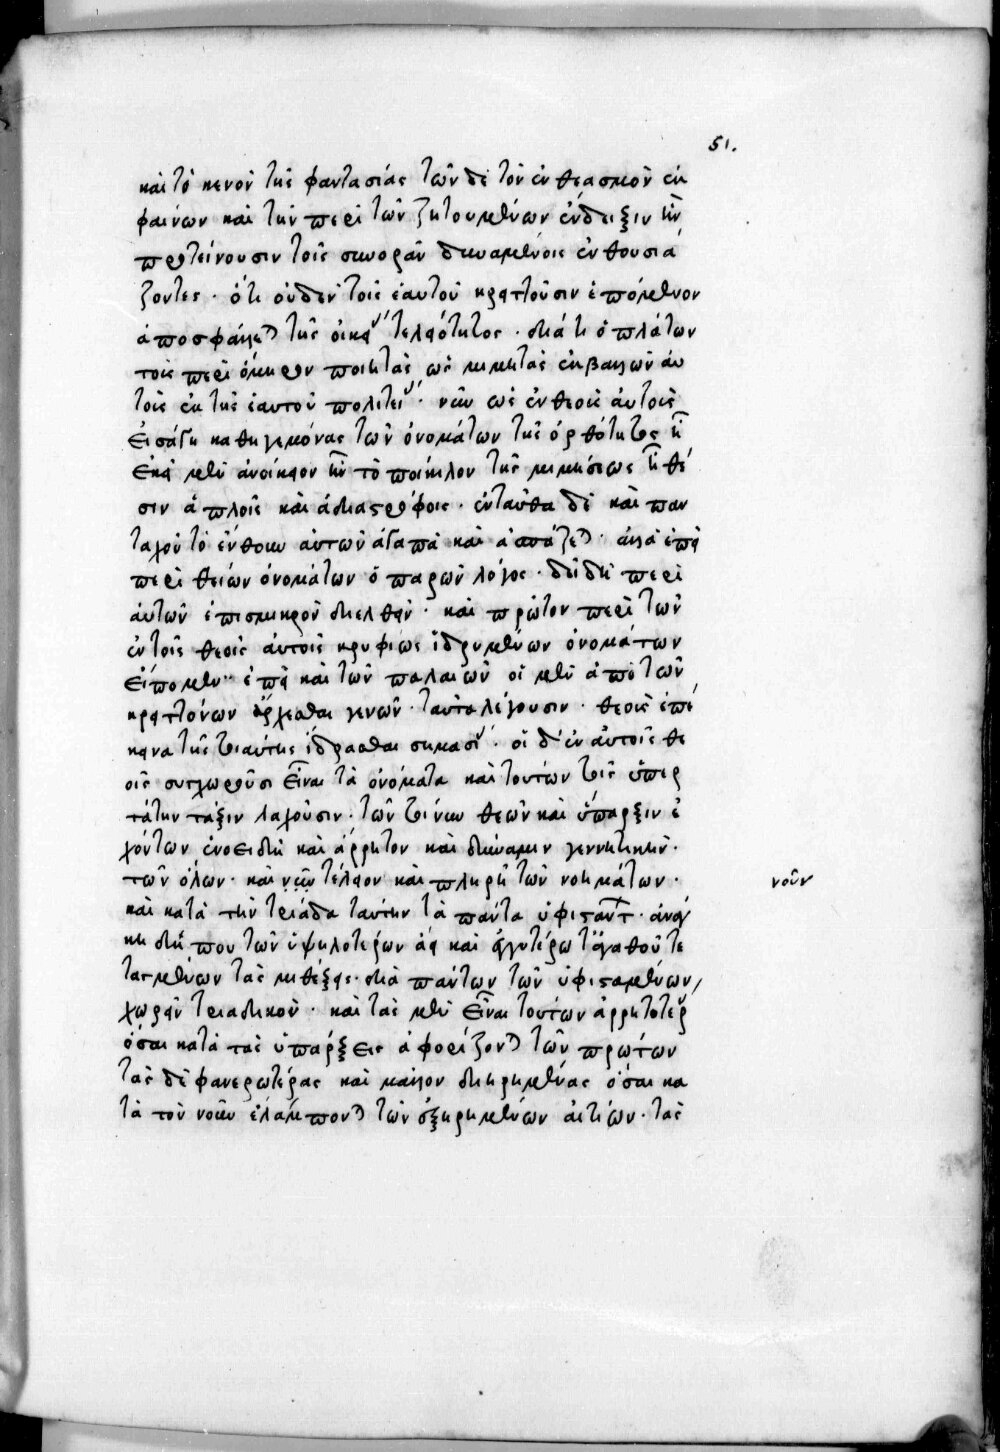 51.
καὶ τὸ κενὸν τῆς φαντασίας τῶν δὲ τὸν ἐνθεασμὸν ἐκ
φαίνων καὶ τὴν περὶ τῶν ζητουμένων ἔνδειξιν
προτείνουσιν τοῖς συνορᾶν δυναμένοις ἐνθουσιά
ζοντες. ὅτι οὐδὲν τοῖς ἑαυτοῦ κρατοῦσιν ἑπόμενον
τῆς οἰκεί τελειότητος. διά τι ὁ πλάτων
τοὺς περὶ ὅμηρον ποιητὰς ὡς μιμητὰς ἐκβαλὼν αὐ
τοὺς ἐκ τῆς ἑαυτοῦ πολιτεί. νῦν ὡς ἐνθέους αὐτοὺς
εἰσάγει καθηγεμόνας τῶν ὀνομάτων τῆς ὀρθότητος
ἐκεῖ μὲν ἀνοίκειον ἦν τὸ ποικίλον τῆς μιμήσεως
σιν ἁπλοῖς καὶ ἀδιαστρόφοις. ἐνταῦθα δὲ καὶ παν
ταχοῦ τὸ ἔνθουν αὐτῶν ἀγαπᾶ καὶ ἀσπάζε. ἀλλ᾽ ἐπεὶ
περὶ θείων ὀνομάτων ὁ παρὼν λόγος. δεῖ δὴ περὶ
αὐτῶν ἐπισμικρὸν διελθεῖν. καὶ πρῶτον περὶ τῶν
ἐν τοῖς θεοῖς αὐτοῖς κρυφίως ἱδρυμένων ὀνομάτων
εἴπομεν ἐπεὶ καὶ τῶν παλαιῶν οἱ μὲν ἀπὸ τῶν
κρειττόνων ἄρχεσθαι γενῶν. ταῦτα λέγουσιν. θεοὺς ἐπέ
κεινα τῆς τοιαύτης ἱδρύσθαι σημασί. οἱ δ᾽ ἐν αὐτοῖς θε
οῖς συγχωροῦσι εἶναι τὰ ὀνόματα καὶ τούτων τοῖς ὑπερ
τάτην τάξιν λαχοῦσιν. τῶν τοίνυν θεῶν καὶ ὕπαρξιν ἐ
χόντων ἑνοειδῆ καὶ ἄρρητον καὶ δύναμιν γεννητικὴν.
τῶν ὅλων. καὶ νῦν τέλειον καὶ πλήρη τῶν νοημάτων. νοῦν
καὶ κατὰ τὴν τριάδα ταύτην τὰ πάντα ὑφισταντ. ἀνάγ
κη δή που τῶν ὑψηλοτέρων ἀεὶ καὶ ἐγγυτέρω τἀγαθοῦ τε
ταγμένων τὰς μεθέξεις. διὰ πάντων τῶν ὑφισταμένων,
χωρεῖν τριαδικόν. καὶ τὰς μὲν εἶναι τούτων ἀρρητοτέρ
ὅσαι κατὰ τὰς ὑπάρξεις ἀφορίζον τῶν πρώτων
τὰς δὲ φανερωτέρας καὶ μᾶλλον διῃρημένας ὅσαι κα
τὰ τὸν νοῦν ἐλάμπον τῶν ἐξῃρημένων αἰτίων. τὰς